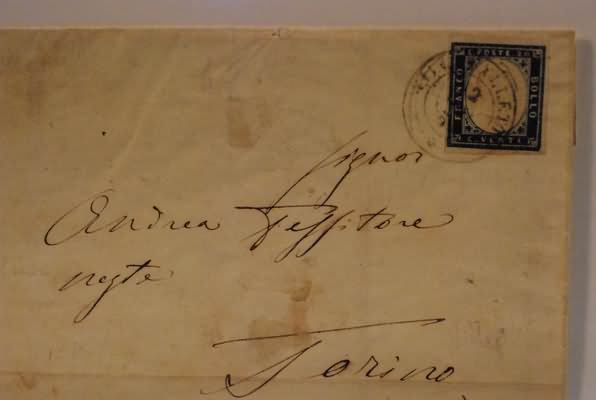 C. POSTE 20
FRANCO
BOLLO
C. VENTI
Signor
Andrea Tessitore
negte
Torino